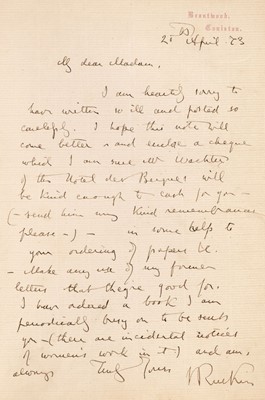 Brantwood,
Coniston.
2 April 83
My dear Madam,
I am heartily sorry to
have written so ill and posted so
carelessly. I hope this note will
come better and enclose a cheque
which I am sure Mr Wachter
of the Hotel des Bergues will
be kind enough to cash for you –
(– send him my kind remembrances
please –) – in some help to
your ordering of papers &c.
– Make any use of my former
letters that they're good for.
I have ordered a book I am
periodically busy on to be sent
you – (there are incidental notices
of women's work in it) and am,
always Truly Yours
J Ruskin